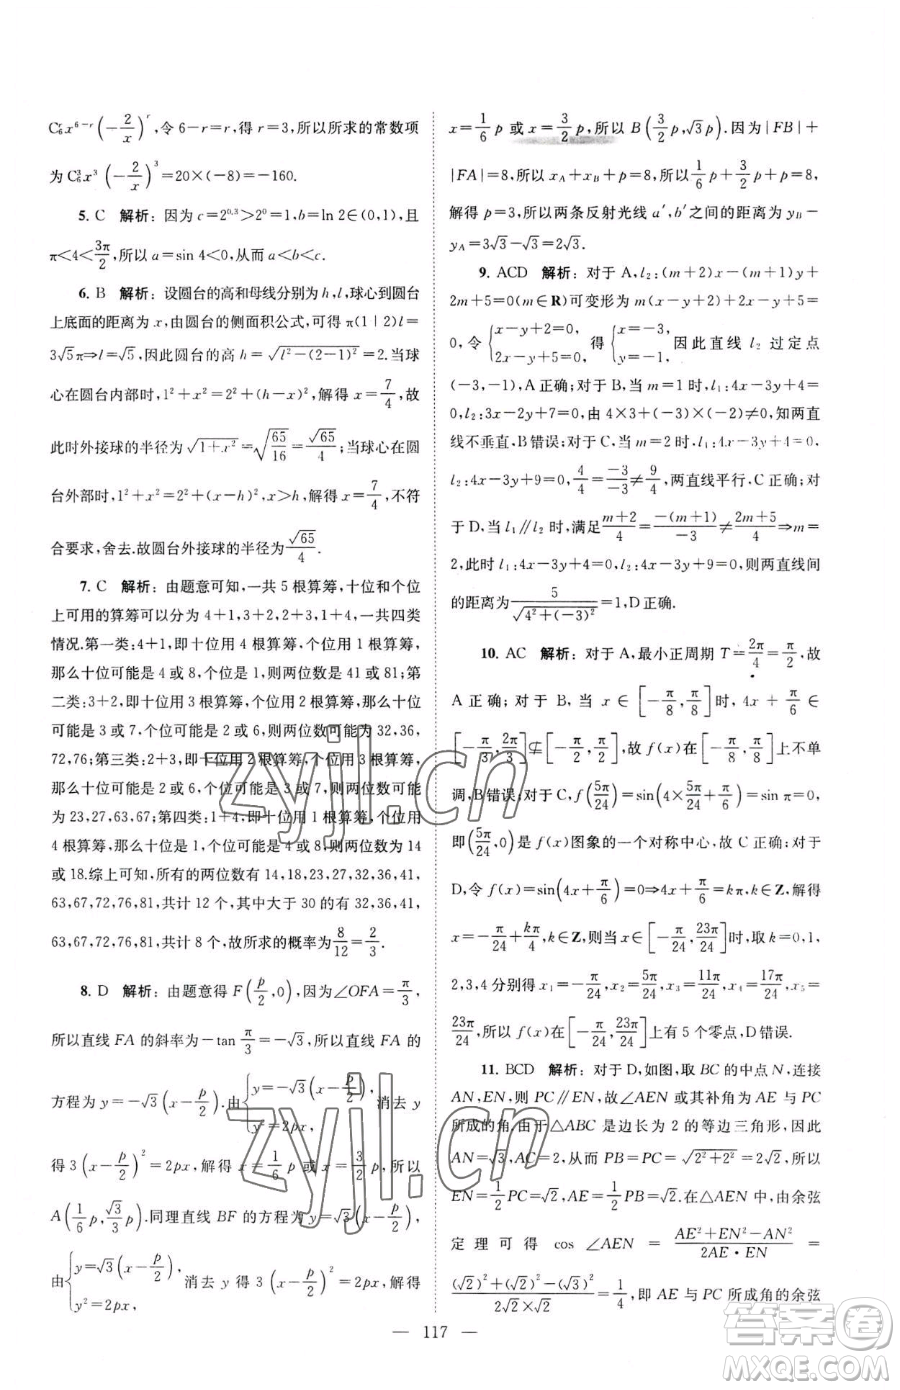 C₆ʳx⁶⁻ʳ(-2/x)ʳ,令 6-r=r,得 r=3,所以所求的常数项
为 C₆³x³(-2/x)³=20×(-8)=-160.
5. C 解析:因为 c=2^0.3>2⁰=1,b=ln 2∈(0,1),且
π<4<3π/2,所以 a=sin 4<0,所以 a<b<c.
6. B 解析:设圆台的高和母线分别为 h,l,球心到圆台
上底面的距离为 x,由圆台的侧面积公式,可得 π(1|2)l=
3√5π⇒l=√5,因此圆台的高 h=√(l²-(2-1)²)=2.当球
心在圆台内部时,1²+x²=2²+(h-x)²,解得 x=7/4,故
此时外接球的半径为√(1+x²)=√(65/16)=√65/4;当球心在圆
台外部时,1²+x²=2²+(x-h)²,x>h,解得 x=7/4,不符
合要求,舍去.故圆台外接球的半径为√65/4.
7. C 解析:由题意可知,一共 5 根算筹,十位和个位
上可用的算筹可以分为 4+1,3+2,2+3,1+4,一共四类
情况.第一类:4+1,即十位用 4 根算筹,个位用 1 根算筹,
那么十位可能是 4 或 8,个位是 1,则两位数是 41 或 81;第
二类:3+2,即十位用 3 根算筹,个位用 2 根算筹,那么十位
可能是 3 或 7,个位可能是 2 或 6,则两位数可能为 32,36,
72,76;第三类:2+3,即十位用 2 根算筹,个位用 3 根算筹,
那么十位可能是 2 或 6,个位可能是 3 或 7,则两位数可能
为 23,27,63,67;第四类:1+4,即十位用 1 根算筹,个位用
4 根算筹,那么十位是 1,个位可能为 4 或 8,则两位数为 14
或 18.综上可知,所有的两位数有 14,18,23,27,32,36,41,
63,67,72,76,81,共计 12 个,其中大于 30 的有 32,36,41,
63,67,72,76,81,共计 8 个,故所求的概率为8/12=2/3.
8. D 解析:由题意得 F(p/2,0),因为∠OFA=π/3,
所以直线 FA 的斜率为-tan π/3=-√3,所以直线 FA 的
方程为 y=-√3(x-p/2).由{y=-√3(x-p/2), y²=2px, 消去 y
得 3(x-p/2)²=2px,解得 x=1/6 p 或 x=3/2 p,所以
A(1/6 p,√3/3 p).同理直线 BF 的方程为 y=√3(x-p/2),
由{y=√3(x-p/2), y²=2px, 消去 y 得 3(x-p/2)²=2px,解得
x=1/6 p 或 x=3/2 p,所以 B(3/2 p,√3p).因为|FB|+
|FA|=8,所以 x_A+x_B+p=8,所以1/6 p+3/2 p+p=8,
解得 p=3,所以两条反射光线 a′,b′之间的距离为 y_B-
y_A=3√3-√3=2√3.
9. ACD 解析:对于 A,l₂:(m+2)x-(m+1)y+
2m+5=0(m∈R)可变形为 m(x-y+2)+2x-y+5=
0,令{x-y+2=0, 2x-y+5=0, 得{x=-3, y=-1, 因此直线 l₂ 过定点
(-3,-1),A 正确;对于 B,当 m=1 时,l₁:4x-3y+4=
0,l₂:3x-2y+7=0,由 4×3+(-3)×(-2)≠0,知两直
线不垂直,B 错误;对于 C,当 m=2 时,l₁:4x-3y+4=0,
l₂:4x-3y+9=0,由4/4=-3/-3≠9/4,知两直线平行,C 正确;对
于 D,当 l₁∥l₂ 时,满足(m+2)/4=-(m+1)/-3≠(2m+5)/4⇒m=
2,此时 l₁:4x-3y+4=0,l₂:4x-3y+9=0,则两直线间
的距离为5/√(4²+(-3)²)=1,D 正确.
10. AC 解析:对于 A,最小正周期 T=2π/4=π/2,故
A 正确;对于 B,当 x∈[-π/8,π/8]时,4x+π/6∈
[-π/3,2π/3]⊄[-π/2,π/2],故 f(x)在[-π/8,π/8]上不单
调,B 错误;对于 C,f(5π/24)=sin(4×5π/24+π/6)=sin π=0,
即(5π/24,0)是 f(x)图象的一个对称中心,C 正确;对于
D,令 f(x)=sin(4x+π/6)=0⇒4x+π/6=kπ,k∈Z,解得
x=-π/24+kπ/4,k∈Z,则当 x∈[-π/24,23π/24]时,取 k=0,1,
2,3,4 分别得 x₁=-π/24,x₂=5π/24,x₃=11π/24,x₄=17π/24,x₅=
23π/24,所以 f(x)在[-π/24,23π/24]上有 5 个零点,D 错误.
11. BCD 解析:对于 D,如图,取 BC 的中点 N,连接
AN,EN,则 PC∥EN,故∠AEN 或其补角为 AE 与 PC
所成的角,由于△ABC 是边长为 2 的等边三角形,因此
AN=√3,AC=2,从而 PB=PC=√(2²+2²)=2√2,所以
EN=1/2 PC=√2,AE=1/2 PB=√2.在△AEN 中,由余弦
定理可得 cos∠AEN=(AE²+EN²-AN²)/(2AE·EN)=
((√2)²+(√2)²-(√3)²)/(2√2×√2)=1/4,即 AE 与 PC 所成角的余弦
— 117 —
zyjl.cn
zyjl.cn
答案圈
MXQE.COM